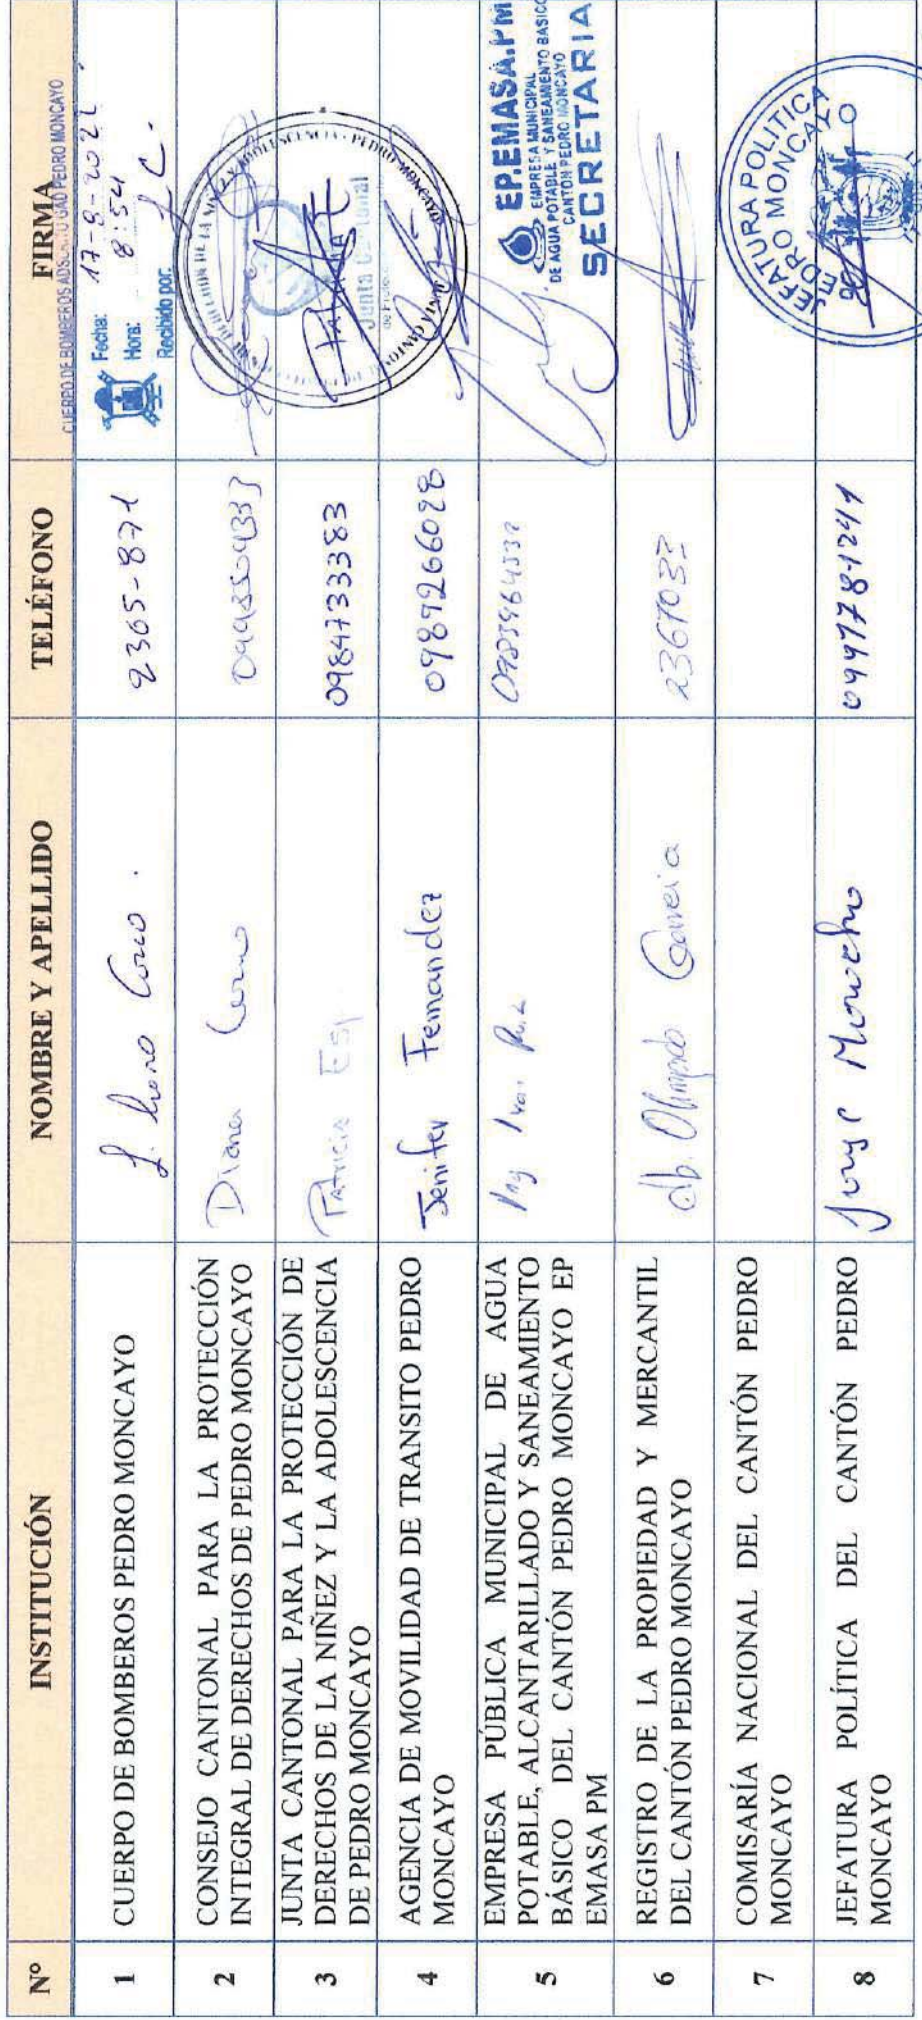 Nº INSTITUCIÓN NOMBRE Y APELLIDO TELÉFONO FIRMA
CUERPO DE BOMBEROS PEDRO MONCAYO
1 CUERPO DE BOMBEROS PEDRO MONCAYO 2365-871
Fecha: 17-8-202
Hora: 8:54
Recibido por:
2 CONSEJO CANTONAL PARA LA PROTECCIÓN
INTEGRAL DE DERECHOS DE PEDRO MONCAYO
Diana
3 JUNTA CANTONAL PARA LA PROTECCIÓN DE
DERECHOS DE LA NIÑEZ Y LA ADOLESCENCIA
DE PEDRO MONCAYO
Patricia 0984733383
Junta Cantonal
4 AGENCIA DE MOVILIDAD DE TRANSITO PEDRO
MONCAYO
Jenifer Fernandez 0989266028
5 EMPRESA PÚBLICA MUNICIPAL DE AGUA
POTABLE, ALCANTARILLADO Y SANEAMIENTO
BÁSICO DEL CANTÓN PEDRO MONCAYO EP
EMASA PM
EP.EMASA.PM
EMPRESA MUNICIPAL
DE AGUA POTABLE Y SANEAMIENTO BASICO
CANTON PEDRO MONCAYO
SECRETARIA
6 REGISTRO DE LA PROPIEDAD Y MERCANTIL
DEL CANTÓN PEDRO MONCAYO
Ab. Olimpido 2367032
7 COMISARÍA NACIONAL DEL CANTÓN PEDRO
MONCAYO
8 JEFATURA POLÍTICA DEL CANTÓN PEDRO
MONCAYO
Jorge 0997781241
JEFATURA POLITICA
PEDRO MONCAYO